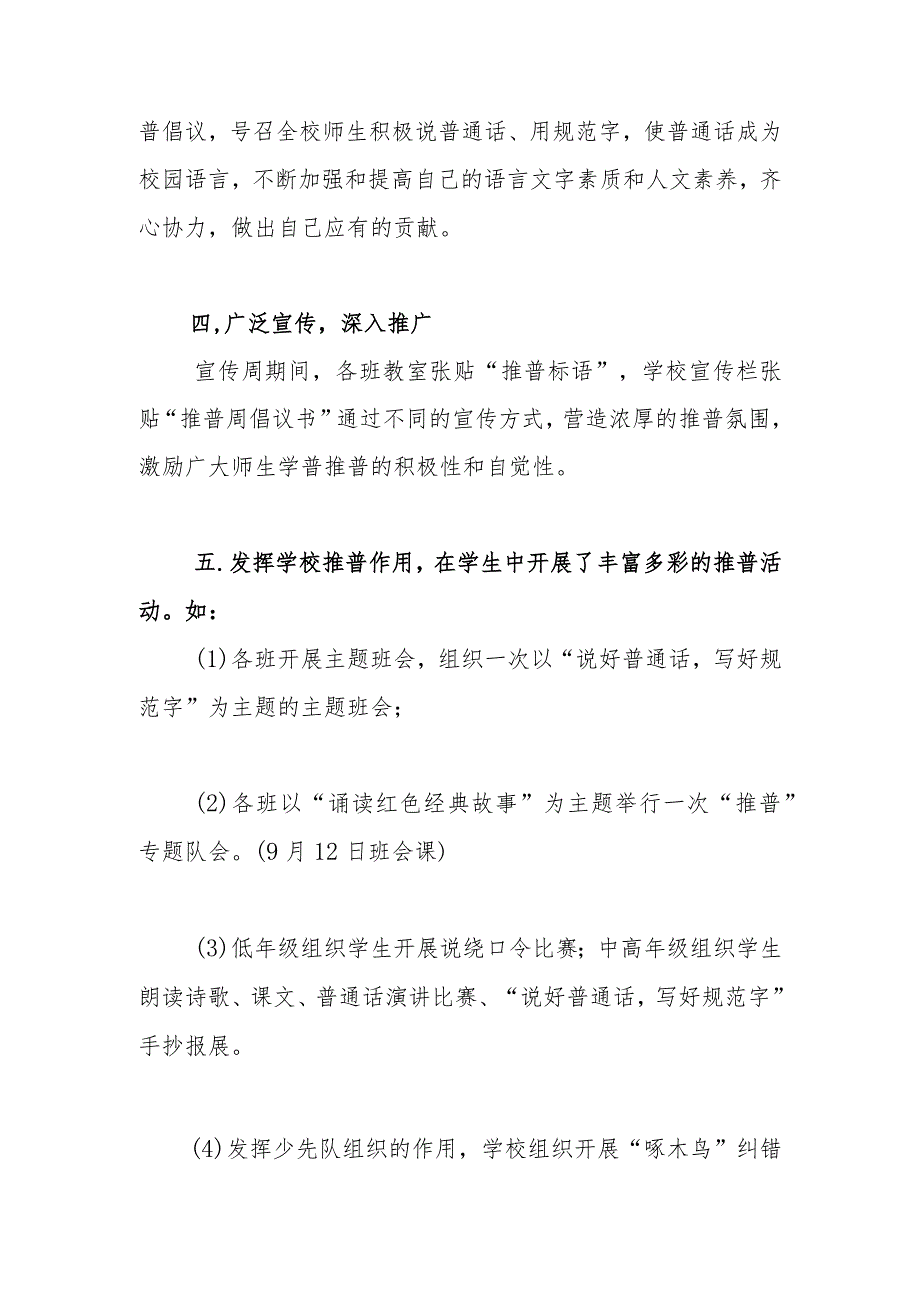 普倡议，号召全校师生积极说普通话、用规范字，使普通话成为
校园语言，不断加强和提高自己的语言文字素质和人文素养，齐
心协力，做出自己应有的贡献。
四,广泛宣传，深入推广
宣传周期间，各班教室张贴“推普标语”，学校宣传栏张
贴“推普周倡议书”通过不同的宣传方式，营造浓厚的推普氛围，
激励广大师生学普推普的积极性和自觉性。
五.发挥学校推普作用，在学生中开展了丰富多彩的推普活
动。如：
(1)各班开展主题班会，组织一次以“说好普通话，写好规
范字”为主题的主题班会；
(2)各班以“诵读红色经典故事”为主题举行一次“推普”
专题队会。(9月12日班会课)
(3)低年级组织学生开展说绕口令比赛；中高年级组织学生
朗读诗歌、课文、普通话演讲比赛、“说好普通话，写好规范字”
手抄报展。
(4)发挥少先队组织的作用，学校组织开展“啄木鸟”纠错